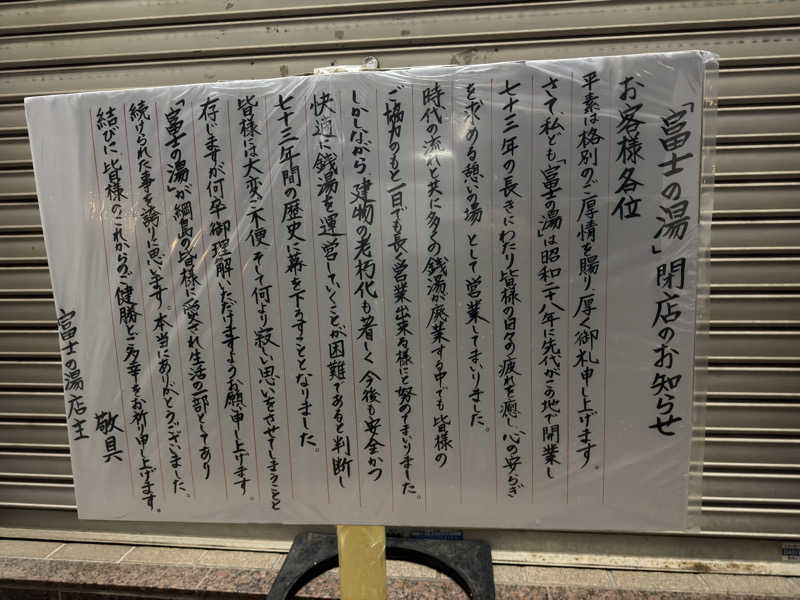 「富士の湯」閉店のお知らせ
お客様各位
平素は格別のご厚情を賜り、厚く御礼申し上げます。
さて、私ども「富士の湯は昭和二十八年に先代がこの地で開業し
七十三年の長きにわたり皆様の日々の疲れを癒し、心の安らぎ
を求める憩いの場として営業してまいりました。
時代の流れと共に多くの銭湯が廃業する中でも皆様の
ご協力のもと一日でも長く営業出来る様にと努めてまいりました。
しかしながら、建物の老朽化も著しく今後も安全かつ
快適に銭湯を運営していくことが困難であると判断し
七十三年間の歴史に幕を下ろすこととなりました。
皆様には大変ご不便そして何より寂しい思いをさせてしまうことと
存じますが何卒御理解いただけますようお願い申し上げます。
「富士の湯」が綱島の皆様に愛され生活の一部としてあり
続けられた事を誇りに思います。本当にありがとうございました。
結びに、皆様のこれからのご健勝とご多幸をお祈り申し上げます。
敬具
富士の湯店主